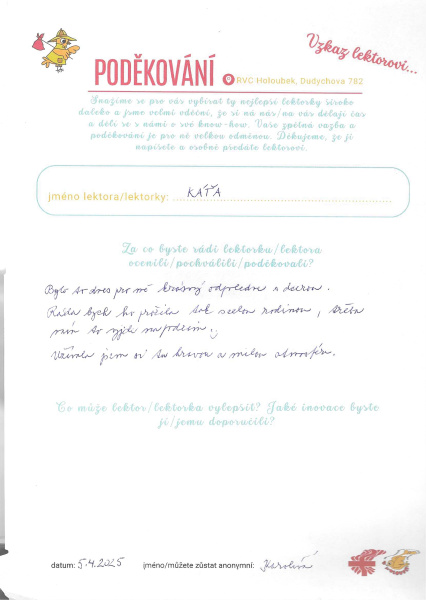 Vzkaz lektorovi...
PODĚKOVÁNÍ
RVC Holoubek, Dudychova 782
Snažíme se pro vás vybírat ty nejlepší lektorky široko
daleko a jsme velmi vděční, že si na nás/na vás dělají čas
a dělí se s námi o své know-how. Vaše zpětná vazba a
poděkování je pro ně velkou odměnou. Děkujeme, že ji
napíšete a osobně předáte lektorovi.
jméno lektora/lektorky: KÁŤA
Za co byste rádi lektorku/lektora
ocenili/pochválili/poděkovali?
Bylo to dnes pro mě krásný odpoledne s dcerou.
Ráda bych ho prožila tak s celou rodinou, třeba
nám to vyjde na podzim.
Užívala jsem si tu hravou a milou atmosféru.
Co může lektor/lektorka vylepšit? Jaké inovace byste
jí/jemu doporučili?
datum: 5.4.2025 jméno/můžete zůstat anonymní: